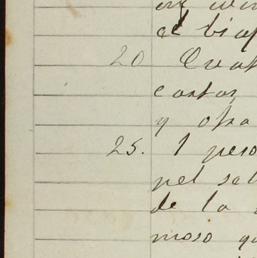 el
20 Cuat
cartas
y otra
25. 1 peso
pel sel
de la
moso qu